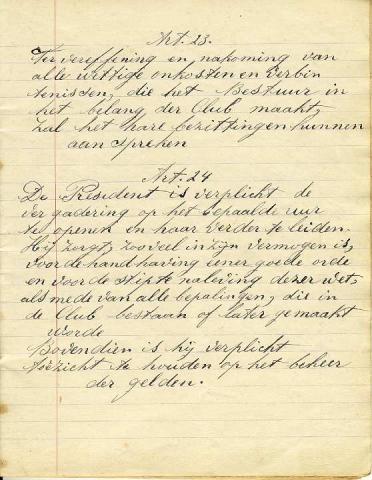 Art. 23.
Ter vereffening en nakoming van
alle wittige onkosten en verbin
tenissen, die het Bestuur in
het belang der Club maakt,
zal het hare bezittingen kunnen
aan spreken
Art. 24
De President is verplicht de
vergadering op het bepaalde uur
te openen en haar verder te leiden.
Hij zorgt, zooveel in zijn vermogen is,
voor de handhaving eener goede orde
en voor de stipte naleving dezer wet,
als mede van alle bepalingen, die in
de Club bestaan of later gemaakt
worde
Bovendien is hij verplicht
toezicht te houden op het beheer
der gelden.